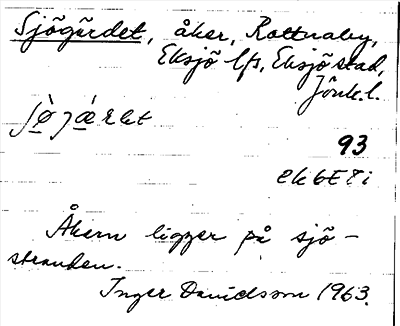 Sjögärdet, åker, Rottnaby,
Eksjö lfs, Eksjö stad,
Jönk. l.
93
ek6E7i
Åkern ligger på sjö-
stranden.
Inger Davidsson 1963.